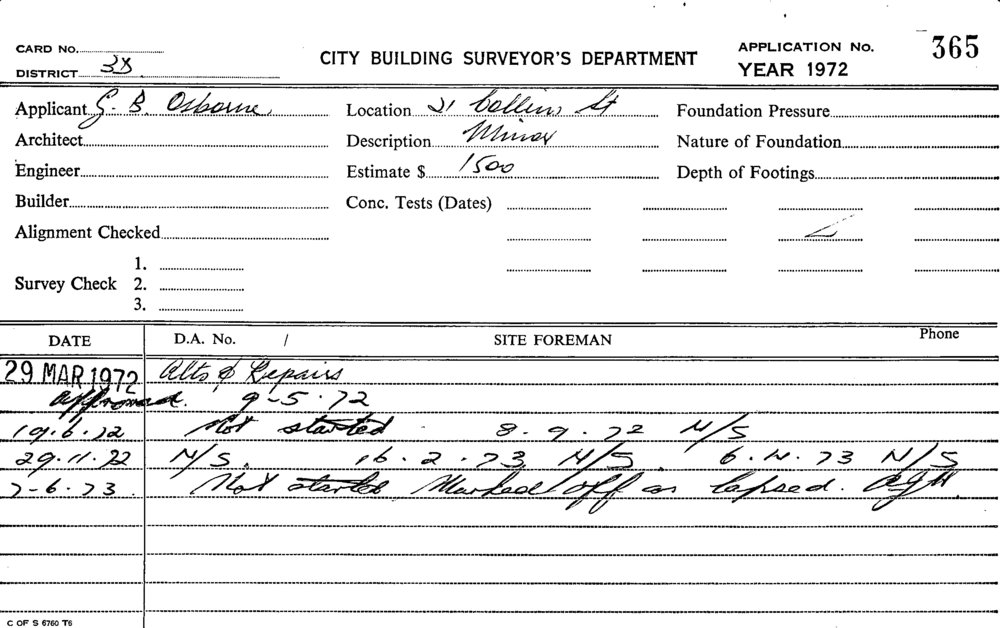 CARD No.
DISTRICT 3B
CITY BUILDING SURVEYOR'S DEPARTMENT
APPLICATION No. 365
YEAR 1972
Applicant G. B. Osborne
Location 21 Collins St
Foundation Pressure
Architect
Description Minor
Nature of Foundation
Engineer
Estimate $ 1500
Depth of Footings
Builder
Conc. Tests (Dates)
Alignment Checked
Survey Check 1.
2.
3.
DATE D.A. No. / SITE FOREMAN Phone
29 MAR 1972 Alts & Repairs
Approved. 9-5-72
19.6.72 Not started - 8.9.72 N/S
29.11.72 N/S. 16.2.73 N/S. 6.4.73 N/S
7-6.73. Not started Marked off as lapsed.
C OF S 6760 T6